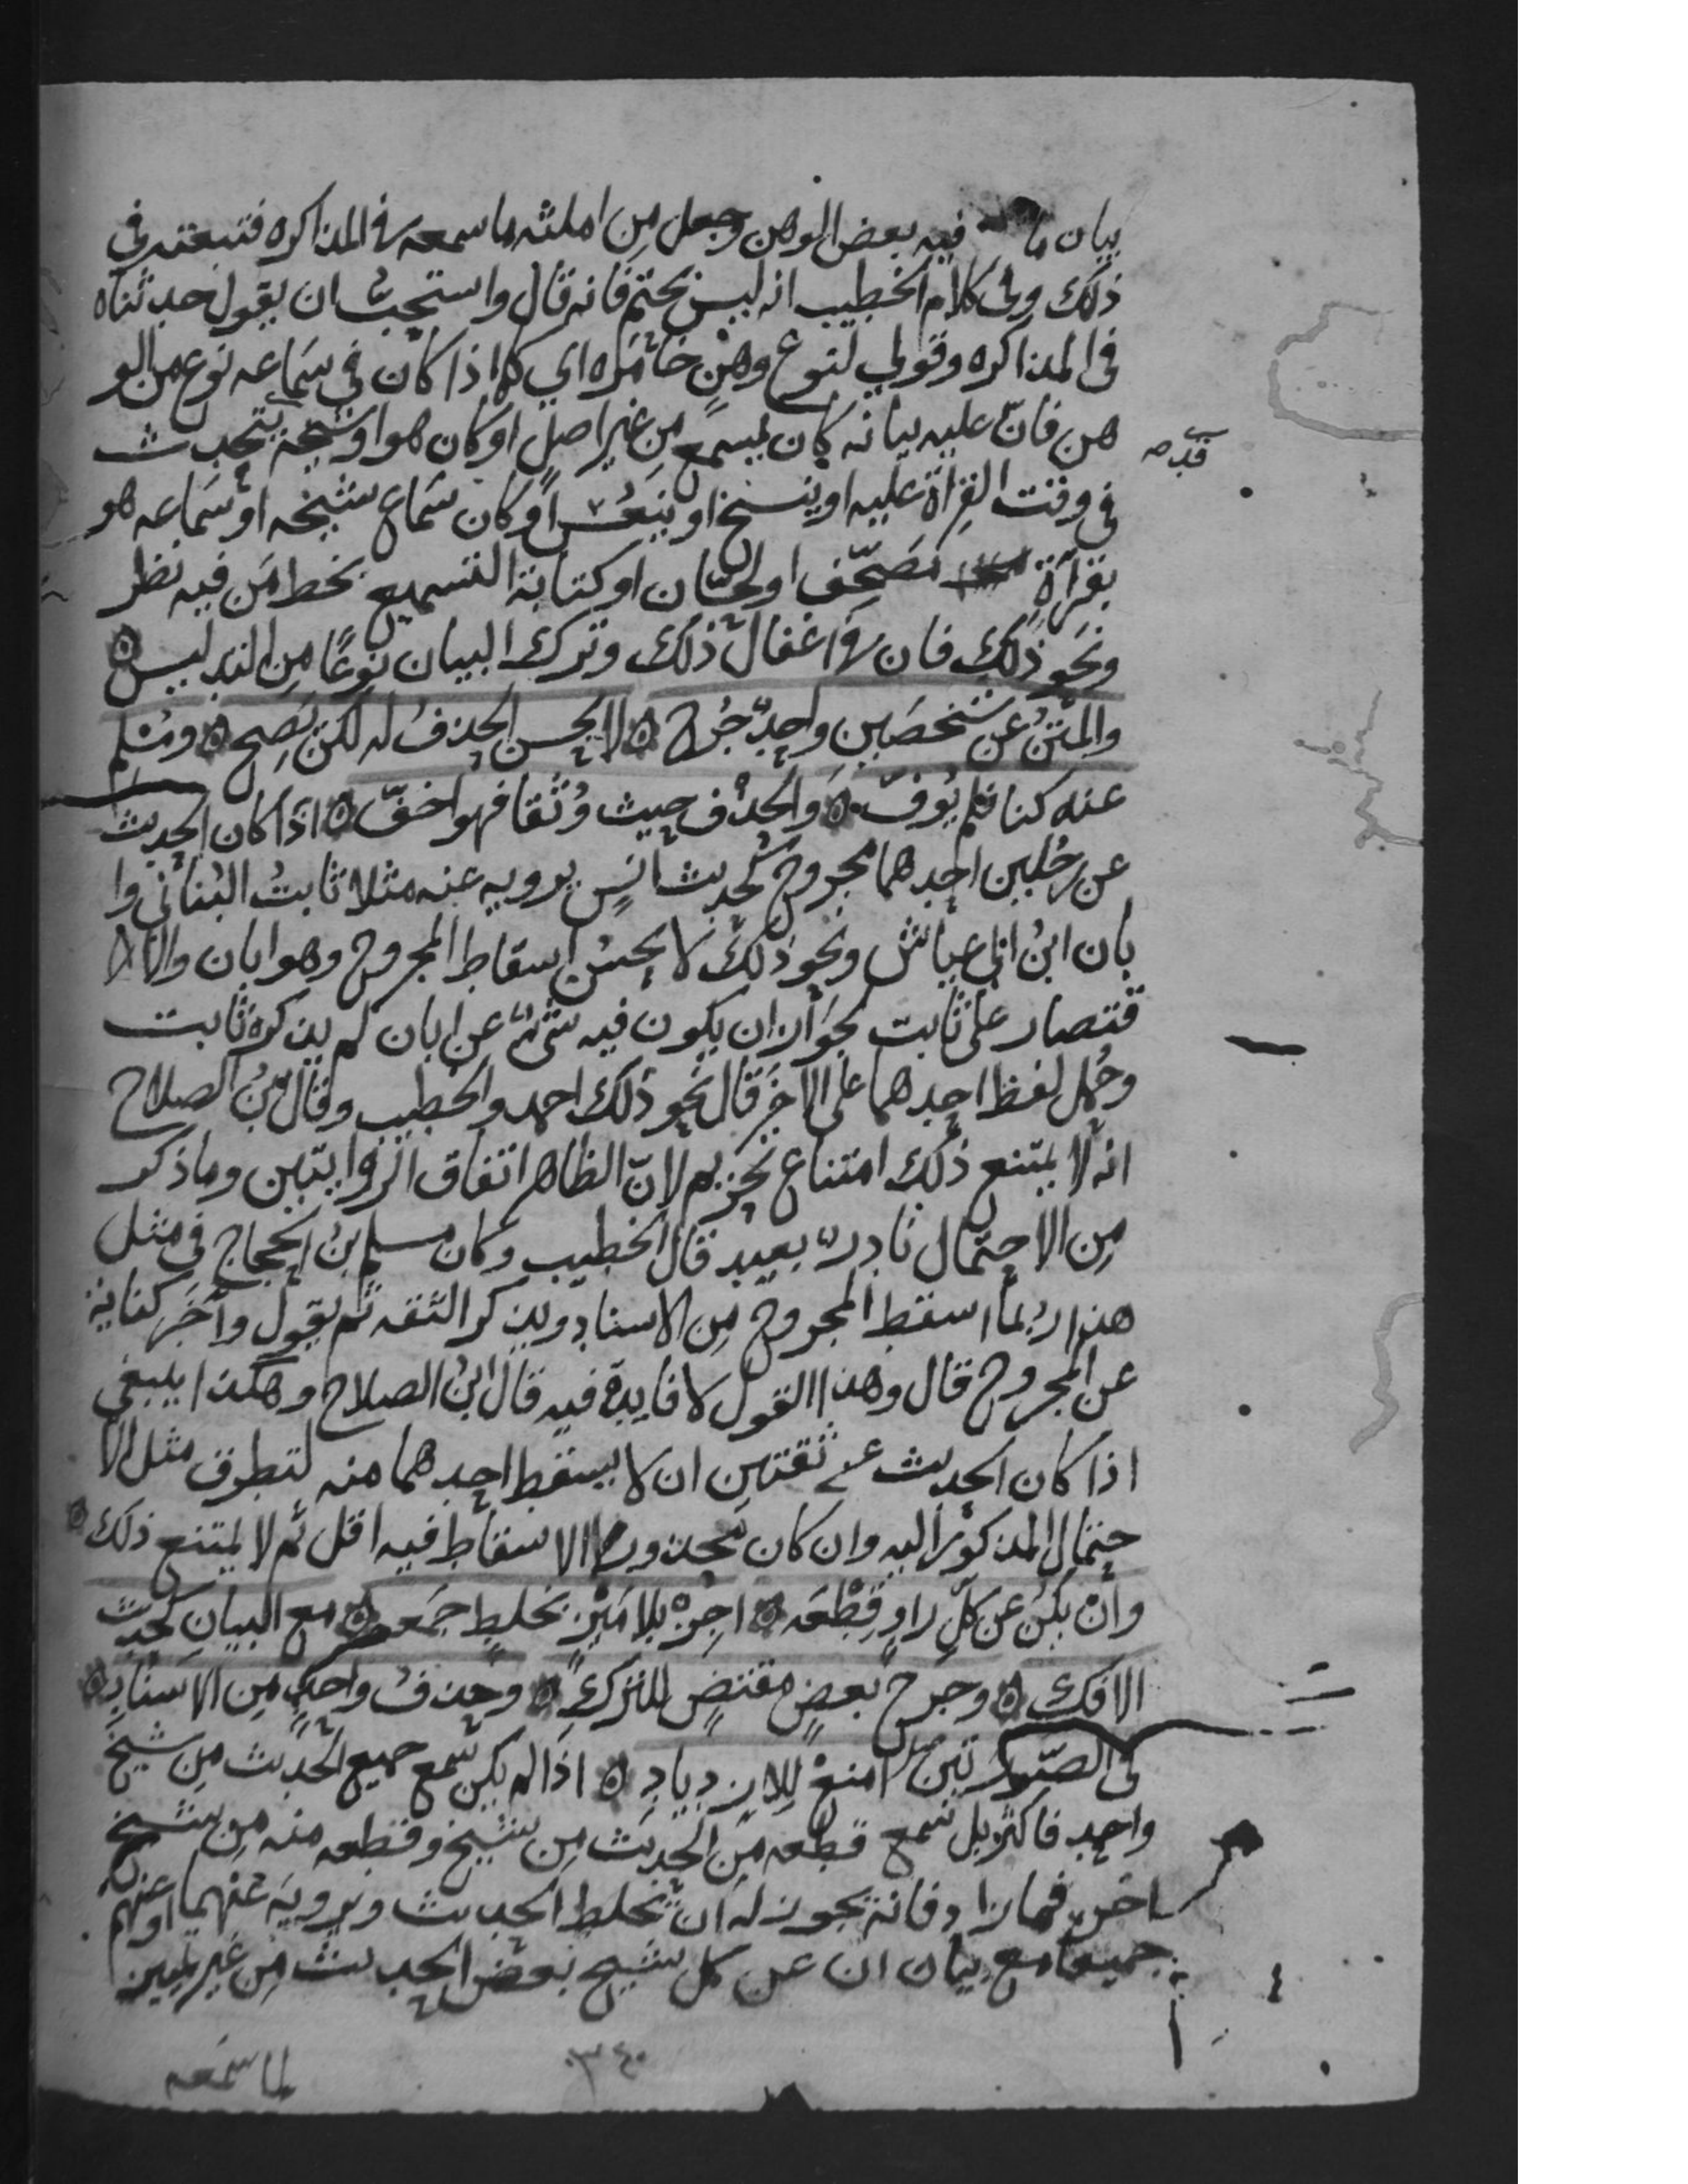 بيان ما فيه بعض الوهن وجعل من امثلته ما سمعه في المذاكره فتبعته في
ذلك وفي كلام الخطيب انه ليس بحتم فانه قال واستحب ان يقول حدثناه
في المذاكره وقولي لنوع وهن خامره اي كما اذا كان في سماعه نوع من الو
هن فان عليه بيانه كان يسمع من غير اصل او كان هو او شيخه يتحدث
في وقت القراة عليه او ينسخ او ينعس او كان سماع شيخه او سماعه هو
بقراة مصحف او لحان او كتابة التسميع بخط من فيه نظر
ونحو ذلك فان في اغفال ذلك وترك البيان نوعا من التدليس ه
والمتن عن شخصين واحد جرح ه لا يحسن الحذف له لكن يصح ه ومسلم
عنه كنا فلم يوف ه والحذف حيث وثقا فهو اخف ه اذا كان الحديث
عن رجلين احدهما مجروح كحديث انس يرويه عنه مثلا ثابت البناني وا
بان ابن ابي عياش ونحو ذلك لا يحسن اسقاط المجروح وهو ابان والا
قتصار على ثابت لجواز ان يكون فيه شئ عن ابان لم يذكره ثابت
وحمل لفظ احدهما على الاخر قال نحو ذلك احمد والخطيب وقال بن الصلاح
انه لا يمتنع ذلك امتناع تحريم لان الظاهر اتفاق الروايتين وما ذكر
من الاحتمال نادر بعيد قال الخطيب وكان مسلم بن الحجاج في مثل
هذا ربما اسقط المجروح من الاسناد ويذكر الثقه ثم يقول واخر كناية
عن المجروح قال وهذا القول لا فايدة فيه قال ابن الصلاح وهكذا ينبغي
اذا كان الحديث عن ثقتين ان لا يسقط احدهما منه لتطرق مثل الا
حتمال المذكور اليه وان كان محذور الاسقاط فيه اقل ثم لا يمتنع ذلك ه
وان يكن عن كل راو قطعه ه اجز بلا ميز بخلط جمعه ه مع البيان كحديث
الافك ه وجرح بعض مقتض للترك ه وحذف واحد من الاسناد ه
في الصورتين امنع للازدياد ه اذا لم يكن سمع جميع الحديث من شيخ
واحد فاكثر بل سمع قطعه من الحديث من شيخ وقطعه منه من شيخ
اخر فما زاد فانه يجوز له ان يخلط الحديث ويرويه عنهما او عنهم
جميعا مع بيان ان عن كل شيخ بعض الحديث من غير تمييز
لما سمعه